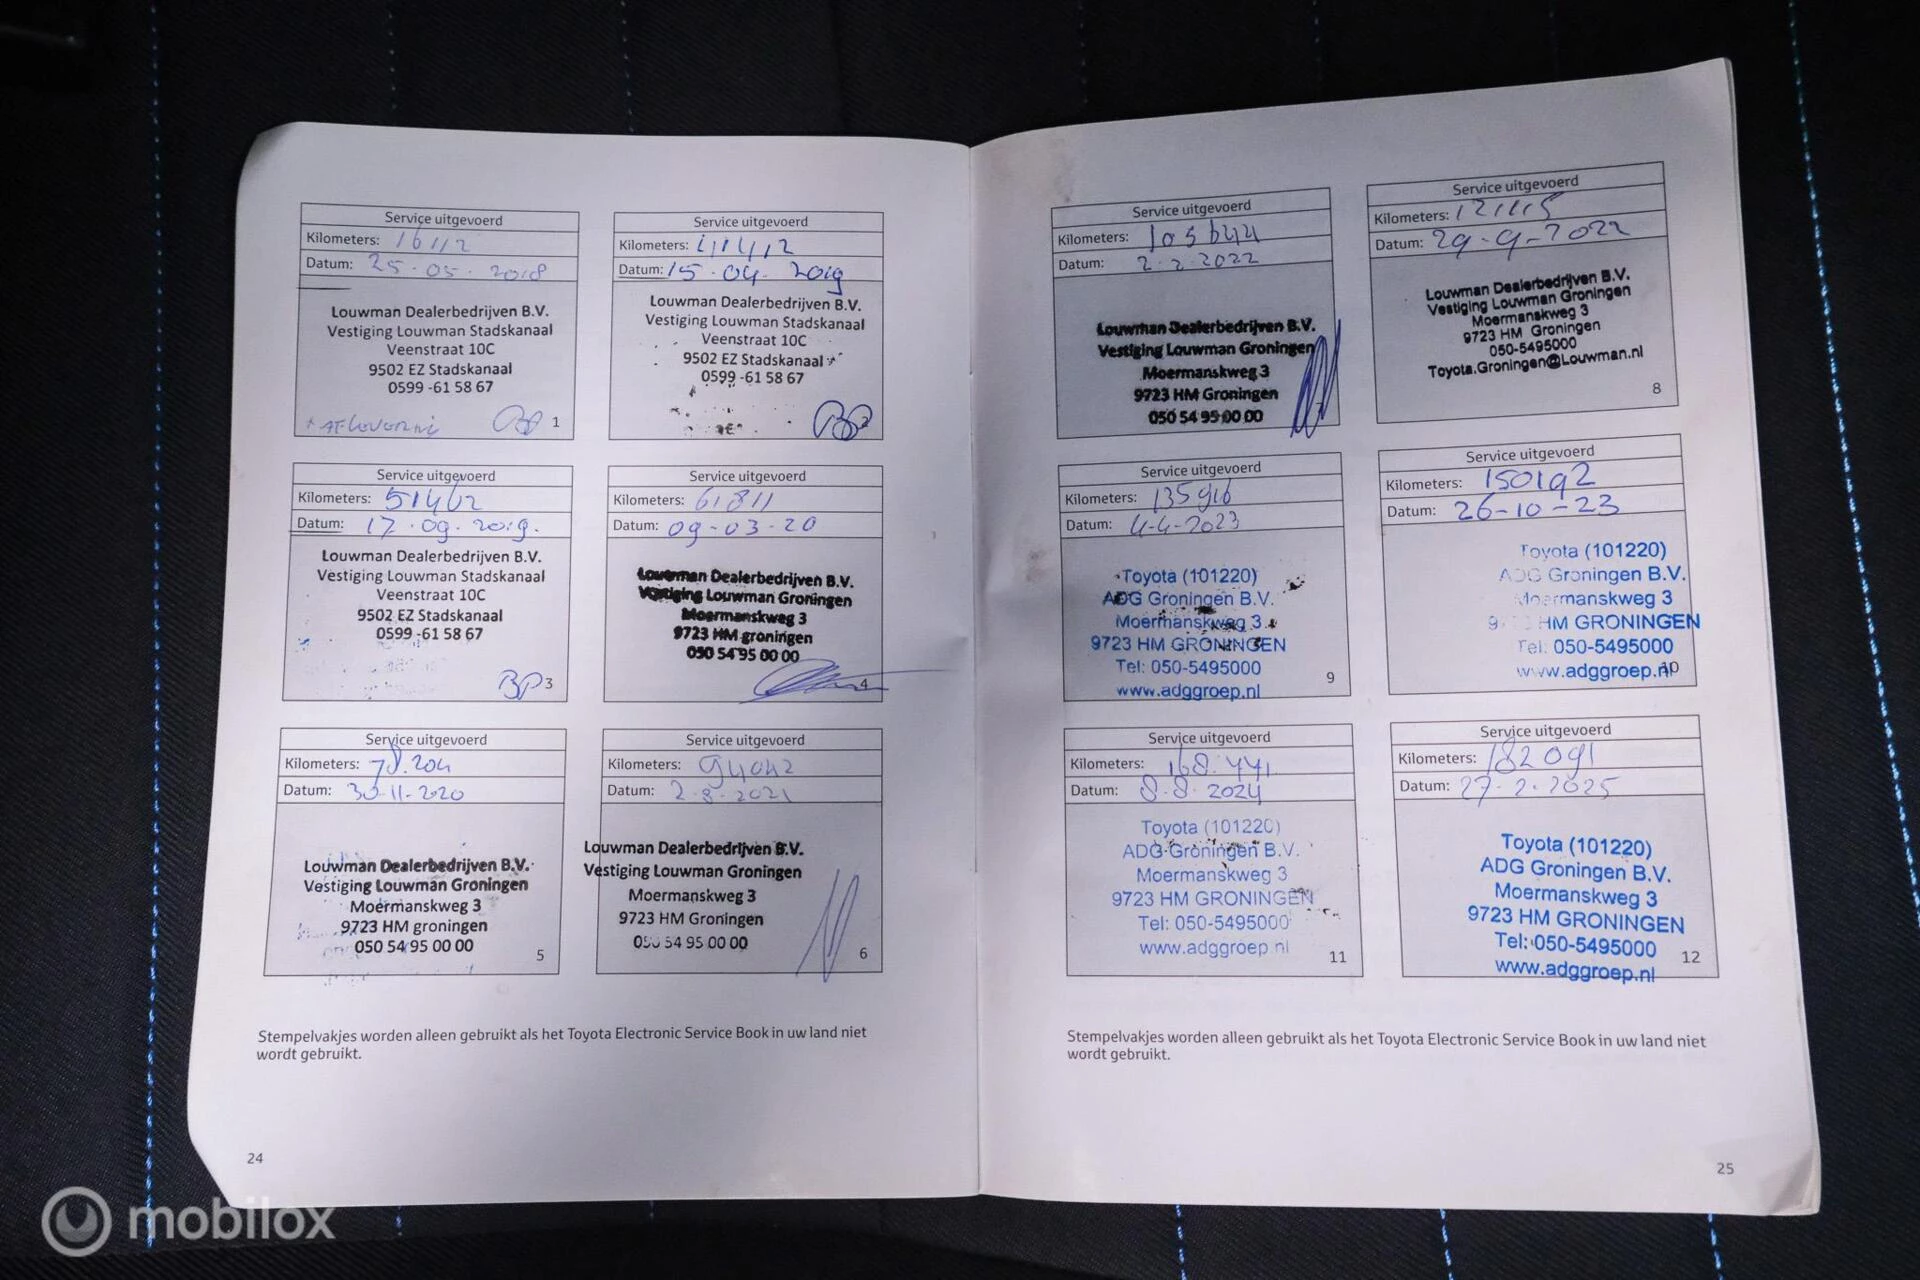 Service uitgevoerd
Kilometers: 16112
Datum: 25-05-2018
Louwman Dealerbedrijven B.V.
Vestiging Louwman Stadskanaal
Veenstraat 10C
9502 EZ Stadskanaal
0599 -61 58 67
* AFLEVERING
1
Service uitgevoerd
Kilometers:
Datum: 15-04-2019
Louwman Dealerbedrijven B.V.
Vestiging Louwman Stadskanaal
Veenstraat 10C
9502 EZ Stadskanaal
0599 -61 58 67
2
Service uitgevoerd
Kilometers: 51462
Datum: 17-09-2019.
Louwman Dealerbedrijven B.V.
Vestiging Louwman Stadskanaal
Veenstraat 10C
9502 EZ Stadskanaal
0599 -61 58 67
3
Service uitgevoerd
Kilometers: 61811
Datum: 09-03-20
Louwman Dealerbedrijven B.V.
Vestiging Louwman Groningen
Moermanskweg 3
9723 HM groningen
050 54 95 00 00
4
Service uitgevoerd
Kilometers: 78.204
Datum: 30-11-2020
Louwman Dealerbedrijven B.V.
Vestiging Louwman Groningen
Moermanskweg 3
9723 HM groningen
050 54 95 00 00
5
Service uitgevoerd
Kilometers: 94042
Datum: 2-8-2021
Louwman Dealerbedrijven B.V.
Vestiging Louwman Groningen
Moermanskweg 3
9723 HM Groningen
050 54 95 00 00
6
Stempelvakjes worden alleen gebruikt als het Toyota Electronic Service Book in uw land niet
wordt gebruikt.
24
Service uitgevoerd
Kilometers: 105644
Datum: 2-2-2022
Louwman Dealerbedrijven B.V.
Vestiging Louwman Groningen
Moermanskweg 3
9723 HM Groningen
050 54 95 00 00
Service uitgevoerd
Kilometers: 121115
Datum: 29-9-2022
Louwman Dealerbedrijven B.V.
Vestiging Louwman Groningen
Moermanskweg 3
9723 HM Groningen
050-5495000
Toyota.Groningen@Louwman.nl
8
Service uitgevoerd
Kilometers: 135916
Datum: 4-4-2023
Toyota (101220)
ADG Groningen B.V.
Moermanskweg 3
9723 HM GRONINGEN
Tel: 050-5495000
www.adggroep.nl
9
Service uitgevoerd
Kilometers: 150192
Datum: 26-10-23
Toyota (101220)
ADG Groningen B.V.
Moermanskweg 3
HM GRONINGEN
Tel: 050-5495000
www.adggroep.nl
10
Service uitgevoerd
Kilometers: 168.441
Datum: 8-8-2024
Toyota (101220)
ADG Groningen B.V.
Moermanskweg 3
9723 HM GRONINGEN
Tel: 050-5495000
www.adggroep nl
11
Service uitgevoerd
Kilometers: 182091
Datum: 27-2-2025
Toyota (101220)
ADG Groningen B.V.
Moermanskweg 3
9723 HM GRONINGEN
Tel: 050-5495000
www.adggroep.nl
12
Stempelvakjes worden alleen gebruikt als het Toyota Electronic Service Book in uw land niet
wordt gebruikt.
25
mobilox